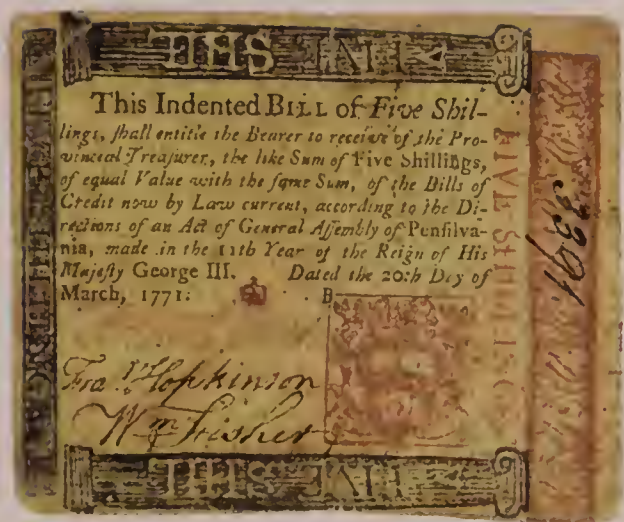 This Indented BILL of Five Shil-
lings, ſhall entitle the Bearer to receive of the Pro-
vincial Treaſurer, the like Sum of Five Shillings,
of equal Value with the ſame Sum, of the Bills of
Credit now by Law current, according to the Di-
rections of an Act of General Aſſembly of Penſilva-
nia, made in the 11th Year of the Reign of His
Majeſty George III. Dated the 20th Day of
March, 1771.
B
Fra.ˢ Hopkinson
Wm Fisher
FIVE SHILLINGS